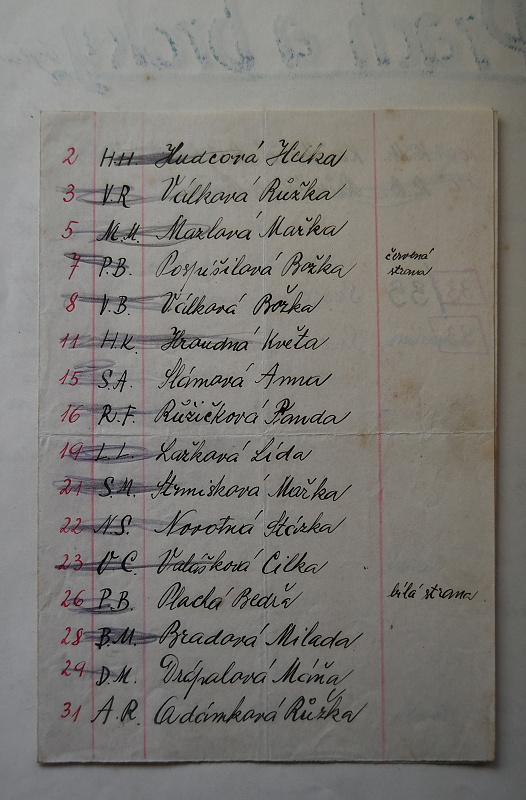 Prach a broky
2 H.H. Hudcová Helka
3 V.R Válková Růžka
5 M.M. Mazlová Mařka
7 P.B. Pospíšilová Božka červená strana
8 V.B. Válková Božka
11 H.K. Hroudná Květa
15 S.A. Slámová Anna
16 R.F. Růžičková Fanda
19 L.L. Lažková Lída
21 S.M. Strmisková Mařka
22 N.S. Novotná Stázka
23 V.C. Valášková Cilka
26 P.B. Plachá Bedra bílá strana
28 B.M. Bradová Milada
29 D.M. Drápalová Máňa
31 A.R. Adámková Růžka